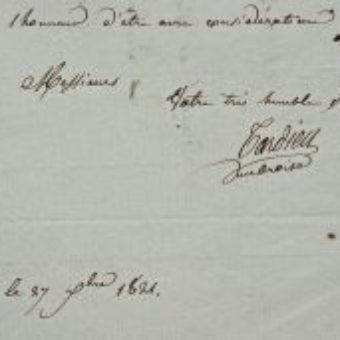 l'honneur d'être avec considération
Messieurs
Votre très humble &
Tardieu
Ambroise
le 27 9bre 1821.